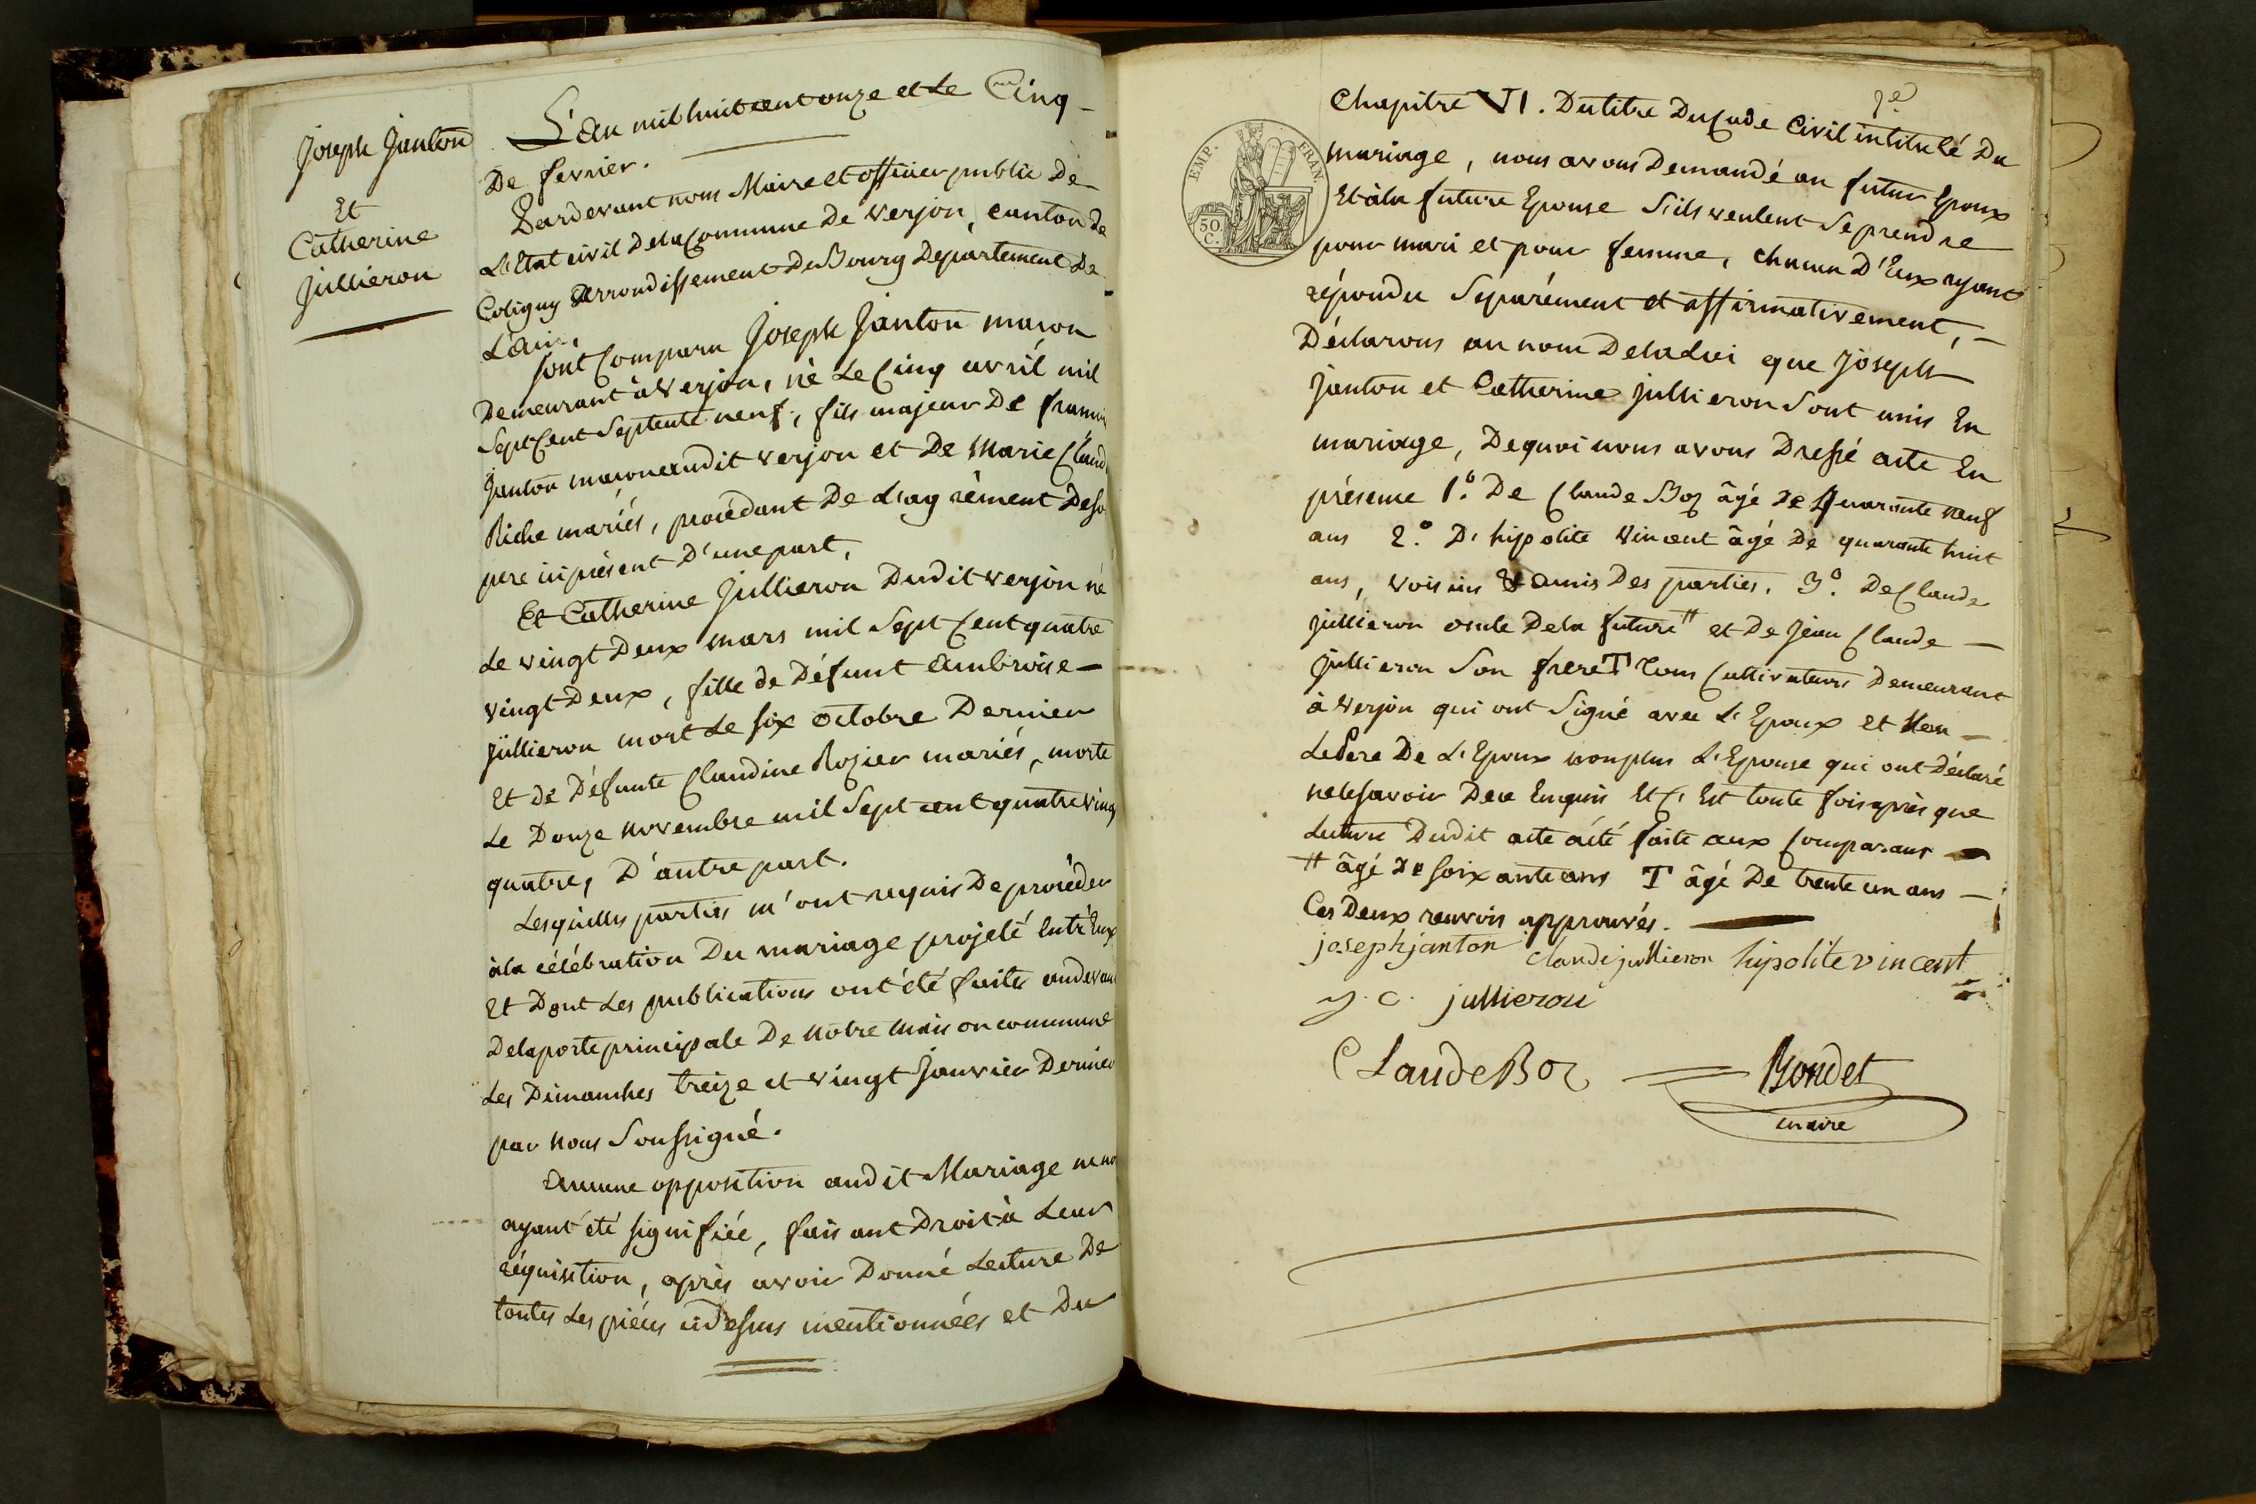 Joseph Janton
Et
Catherine
Jullieron
L'an mil huit cent onze et Le Cinq
De fevrier.
Pardevant nous Maire et officier public De
L'Etat civil De la Commune De Verjon, canton de
Coligny Arrondissement De Bourg Departement De
L'ain,
sont Comparu Joseph Janton maçon
Demeurant à Verjon, né Le Cinq avril mil
Sept Cent Septente neuf, fils majeur De
Janton maçon audit verjon et De Marie
Riche mariés, procédant De L'agrément De so
pere ici présent D'une part,
Et Catherine Jullieron Dudit verjon né
Le vingt Deux mars mil Sept Cent quatre
vingt Deux, fille de Défunt Ambroise
Jullieron mort Le six octobre Dernier
Et de Défunte Claudine Rozier mariés, morte
Le Douze novembre mil Sept cent quatre ving
quatre, D'autre part.
Lesquelles parties m'ont requis De procéder
à la célébration Du mariage projeté entr'Eux
Et Dont Les publications ont été faites au devan
De la porte principale De notre maison commune
Les Dimanches treize et vingt Janvier Dernier
par nous Soussigné.
Aucune opposition audit Mariage ne no
ayant été signifiée, faisant Droit à Leur
réquisition, après avoir Donné Lecture De
toutes Les pièces ci Dessus mentionnées et Du
EMP. FRAN.
50 C.
Chapitre VI. Du titre Du Code Civil intitulé Du
mariage, nous avons Demandé au futur Epoux
Et à la future Epouse S'ils veulent Se prendre
pour mari et pour femme, chacun D'Eux ayant
répondu Séparément et affirmativement,
Déclarons au nom De la Loi que Joseph
Janton et Catherine Jullieron Sont unis En
mariage, De quoi nous avons Dressé acte En
présence 1.º De Claude Boz âgé de Quarante neuf
ans 2.º D'hipolite Vincent âgé De quarante huit
ans, voisins & amis Des parties. 3.º De Claude
Jullieron oncle De la future # et De Jean Claude
Jullieron Son frere T tous Cultivateurs Demeurant
à Verjon qui ont Signé avec L'Epoux et Non
Le Pere De L'Epoux non plus L'Epouse qui ont Déclaré
ne le savoir De ce Enquis Et C'Est toute fois après que
Lecture Dudit acte a été faite aux Comparans
# âgé de soixante ans T âgé De trente un ans
Ces Deux renvois approuvés.
joseph janton claude jullieron hipolite vincent
J. C. jullieron
Claude Boz Bondet
maire